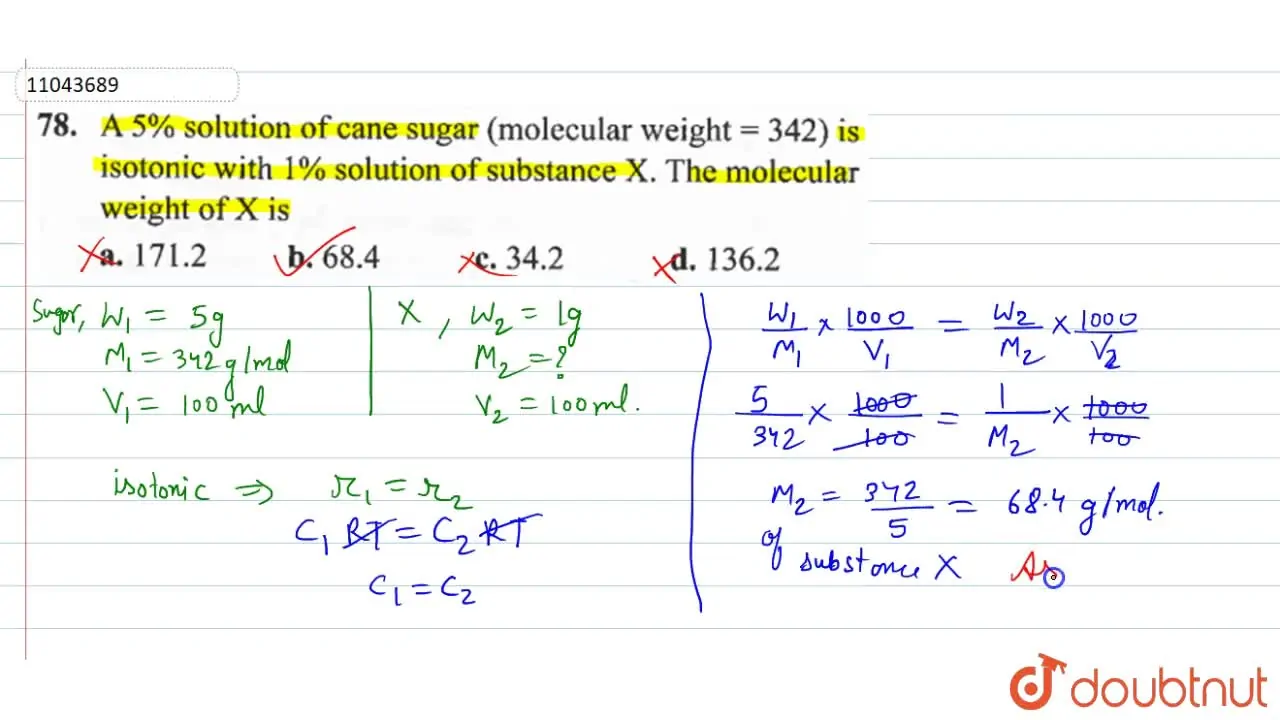 11043689
78. A 5% solution of cane sugar (molecular weight = 342) is
isotonic with 1% solution of substance X. The molecular
weight of X is
a. 171.2 b. 68.4 c. 34.2 d. 136.2
Sugar, W₁ = 5g
M₁ = 342 g/mol
V₁ = 100 ml
X, W₂ = 1g
M₂ = ?
V₂ = 100 ml.
isotonic ⇒ π₁ = π₂
C₁ RT = C₂ RT
C₁ = C₂
W₁/M₁ × 1000/V₁ = W₂/M₂ × 1000/V₂
5/342 × 1000/100 = 1/M₂ × 1000/100
M₂ = 342/5 = 68.4 g/mol.
of substance X
doubtnut